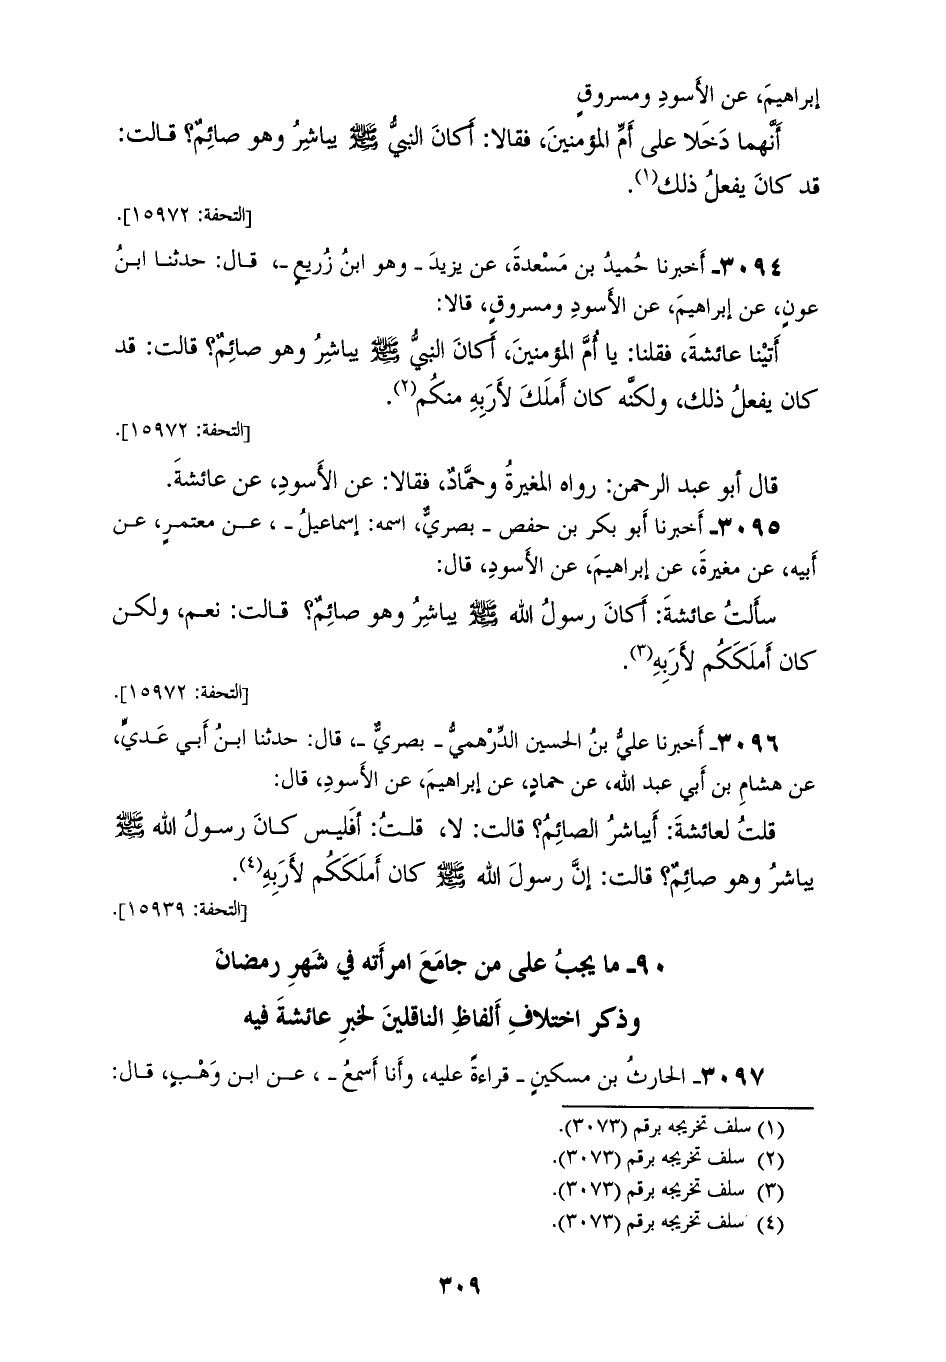 إبراهيمَ، عن الأَسودِ ومسروقٍ
أَنَّهما دَخَلا على أُمِّ المؤمنينَ، فقالا: أَكانَ النبيُّ ﷺ يباشِرُ وهو صائِمٌ؟ قالت:
قد كانَ يفعلُ ذلك(١).
[التحفة: ١٥٩٧٢].
٣٠٩٤ـ أَخبرنا حُميدُ بن مَسْعدةَ، عن يزيدَ ـ وهو ابنُ زُريعٍ ـ، قال: حدثنا ابنُ
عونٍ، عن إبراهيمَ، عن الأَسودِ ومسروقٍ، قالا:
أَتَيْنا عائشةَ، فقلنا: يا أُمَّ المؤمنين، أَكانَ النبيُّ ﷺ يباشِرُ وهو صائِمٌ؟ قالت: قد
كان يفعلُ ذلك، ولكنَّه كان أَملَكَ لأَرَبِهِ منكُم(٢).
[التحفة: ١٥٩٧٢].
قال أبو عبد الرحمن: رواه المغيرةُ وحمَّادٌ، فقالا: عن الأَسودِ، عن عائشةَ.
٣٠٩٥ـ أَخبرنا أبو بكر بن حفص ـ بصريٌّ، اسمه: إسماعيلُ ـ ، عن معتمرٍ، عن
أَبيه، عن مغيرةَ، عن إبراهيمَ، عن الأَسودِ، قال:
سأَلتُ عائشةَ: أَكانَ رسولُ الله ﷺ يباشِرُ وهو صائِمٌ؟ قالت: نعم، ولكن
كان أَملَكَكُم لأَرَبِهِ(٣).
[التحفة: ١٥٩٧٢].
٣٠٩٦ـ أَخبرنا عليُّ بنُ الحسين الدِّرْهميُّ ـ بصريٌّ ـ، قال: حدثنا ابنُ أَبي عَديٍّ،
عن هشامِ بن أَبي عبد الله، عن حمادٍ، عن إبراهيمَ، عن الأَسودِ، قال:
قلتُ لعائشةَ: أَيباشرُ الصائِمُ؟ قالت: لا، قلتُ: أَفليس كانَ رسولُ الله ﷺ
يباشرُ وهو صائِمٌ؟ قالت: إنَّ رسولَ الله ﷺ كان أَملَكَكُم لأَرَبِهِ(٤).
[التحفة: ١٥٩٣٩].
٩٠ـ ما يجبُ على من جامَعَ امرأَته في شَهرِ رمضانَ
وذكر اختلافِ أَلفاظِ الناقلينَ لخبرِ عائشةَ فيه
٣٠٩٧ـ الحارثُ بن مسكينٍ ـ قراءةً عليه، وأَنا أَسمعُ ـ ، عن ابن وَهْبٍ، قال:
(١) سلف تخريجه برقم (٣٠٧٣).
(٢) سلف تخريجه برقم (٣٠٧٣).
(٣) سلف تخريجه برقم (٣٠٧٣).
(٤) سلف تخريجه برقم (٣٠٧٣).
٣٠٩